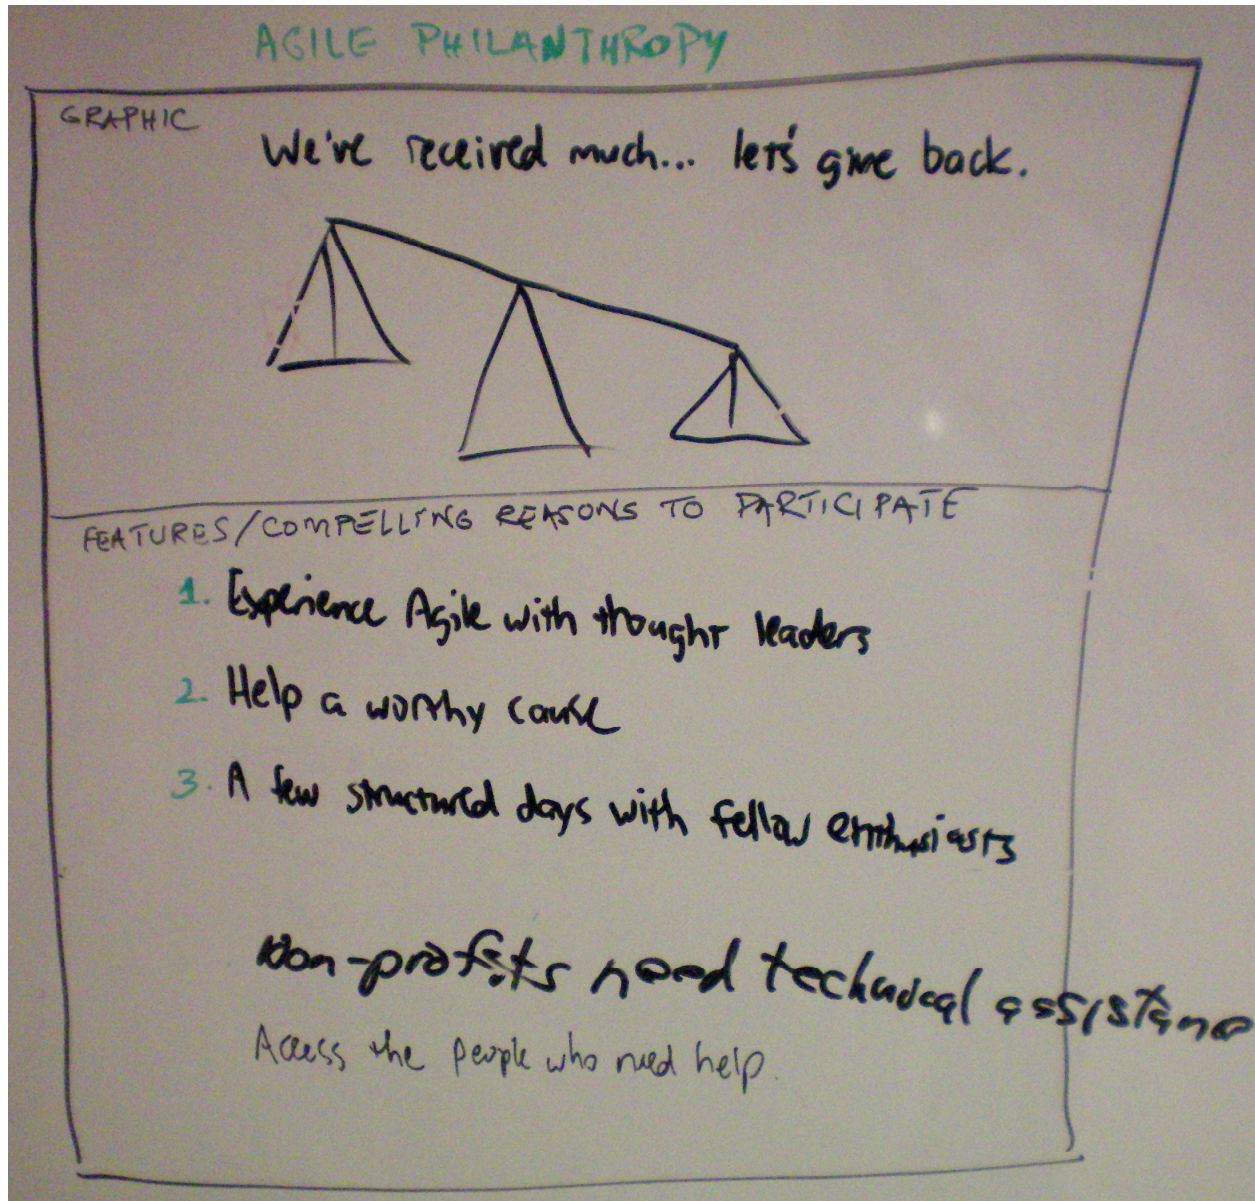 AGILE PHILANTHROPY
GRAPHIC
We've received much... let's give back.
FEATURES/COMPELLING REASONS TO PARTICIPATE
1. Experience Agile with thought leaders
2. Help a worthy cause
3. A few structured days with fellow enthusiasts
Non-profits need technical assistance
Access the people who need help.